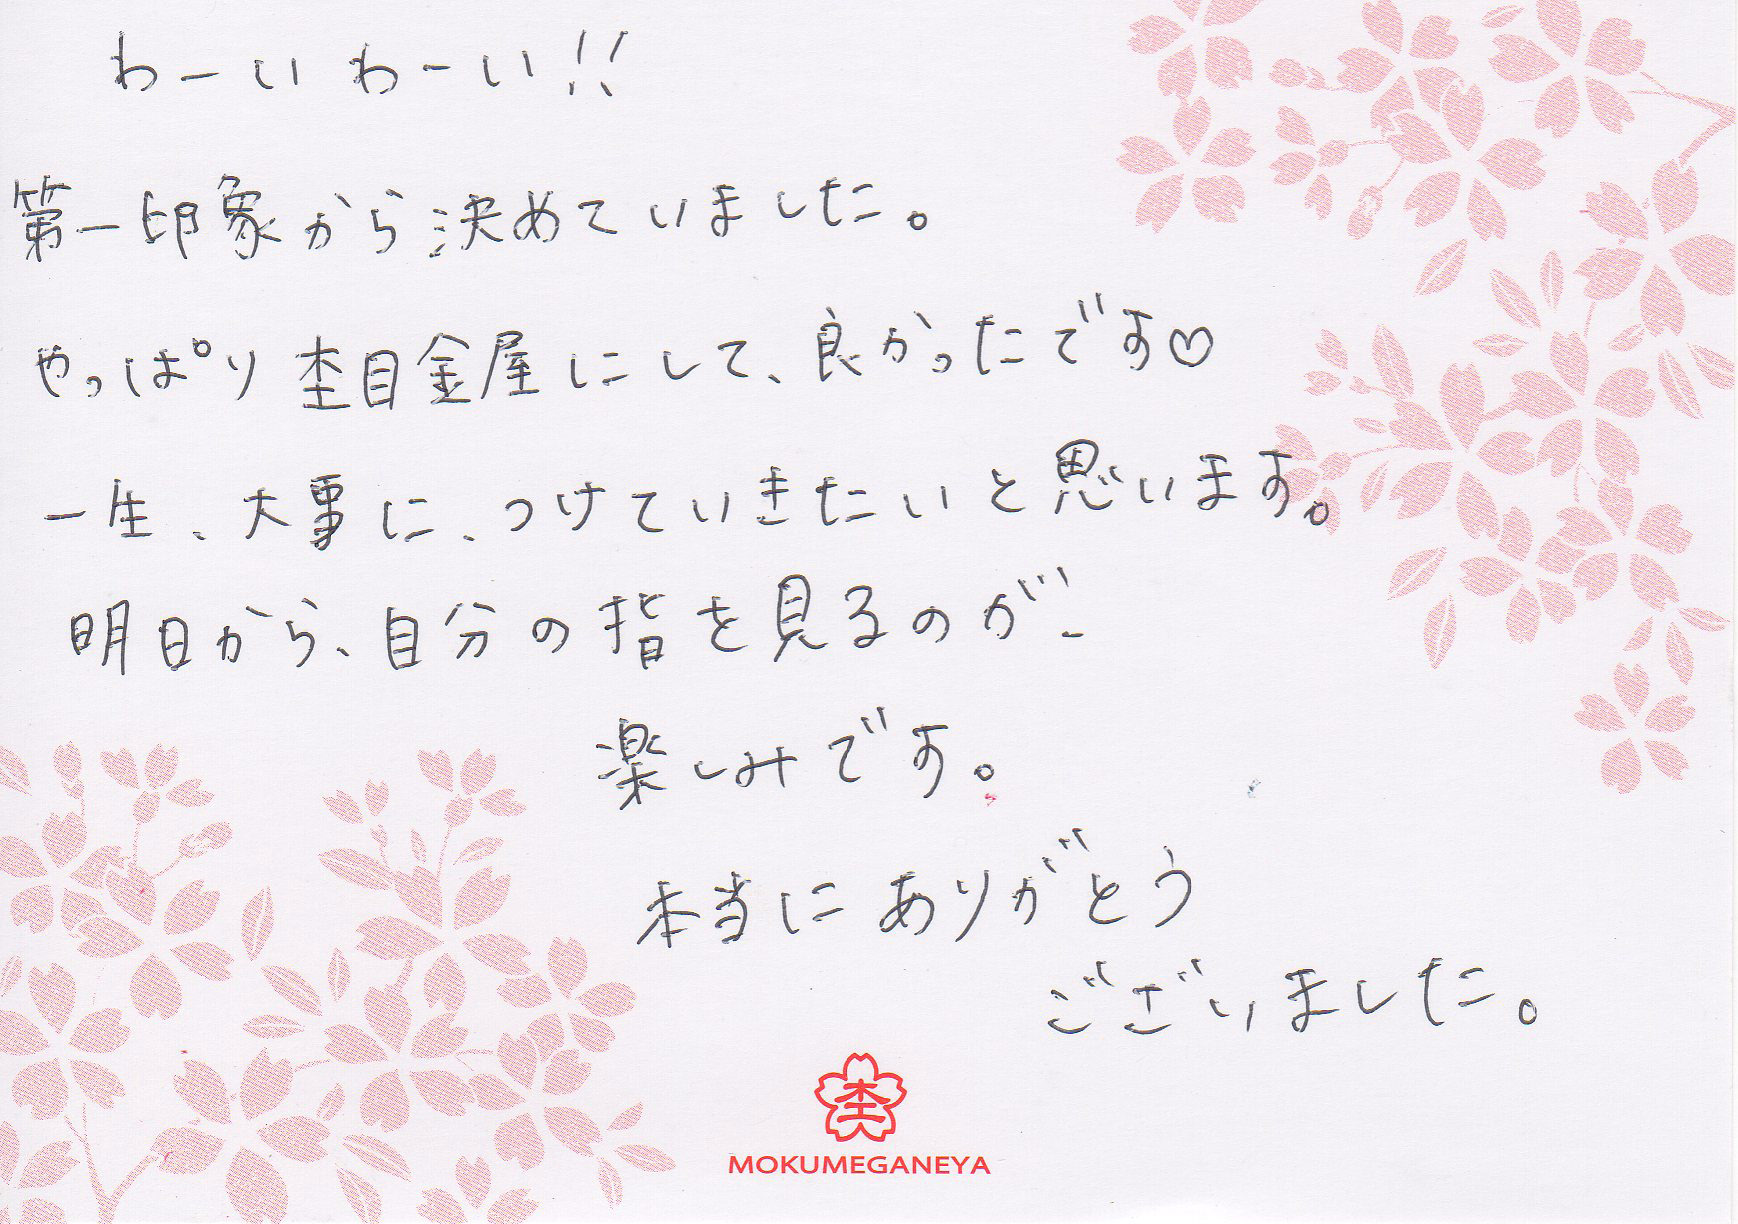 わーいわーい!!
第一印象から決めていました。
やっぱり杢目金屋にして、良かったです♡
一生、大事に、つけていきたいと思います。
明日から、自分の指を見るのが
楽しみです。
本当にありがとう
ございました。
杢
MOKUMEGANEYA